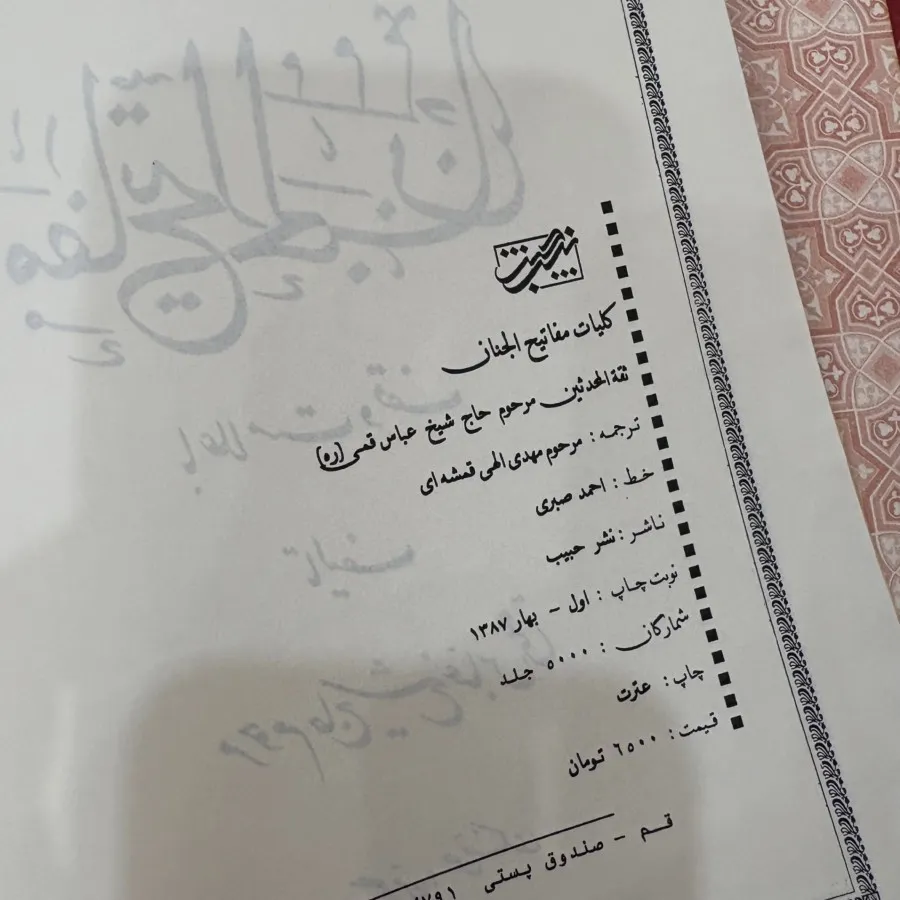 نشر حبیب
کلیات مفاتیح الجنان
ثقة المحدثین مرحوم حاج شیخ عباس قمی (ره)
ترجمه : مرحوم مهدی الهی قمشه ای
خط : احمد صبری
ناشر : نشر حبیب
نوبت چاپ : اول - بهار ۱۳۸۷
شمارگان : ۵۰۰۰ جلد
چاپ : عترت
قیمت : ۶۵۰۰ تومان
قم - صندوق پستی